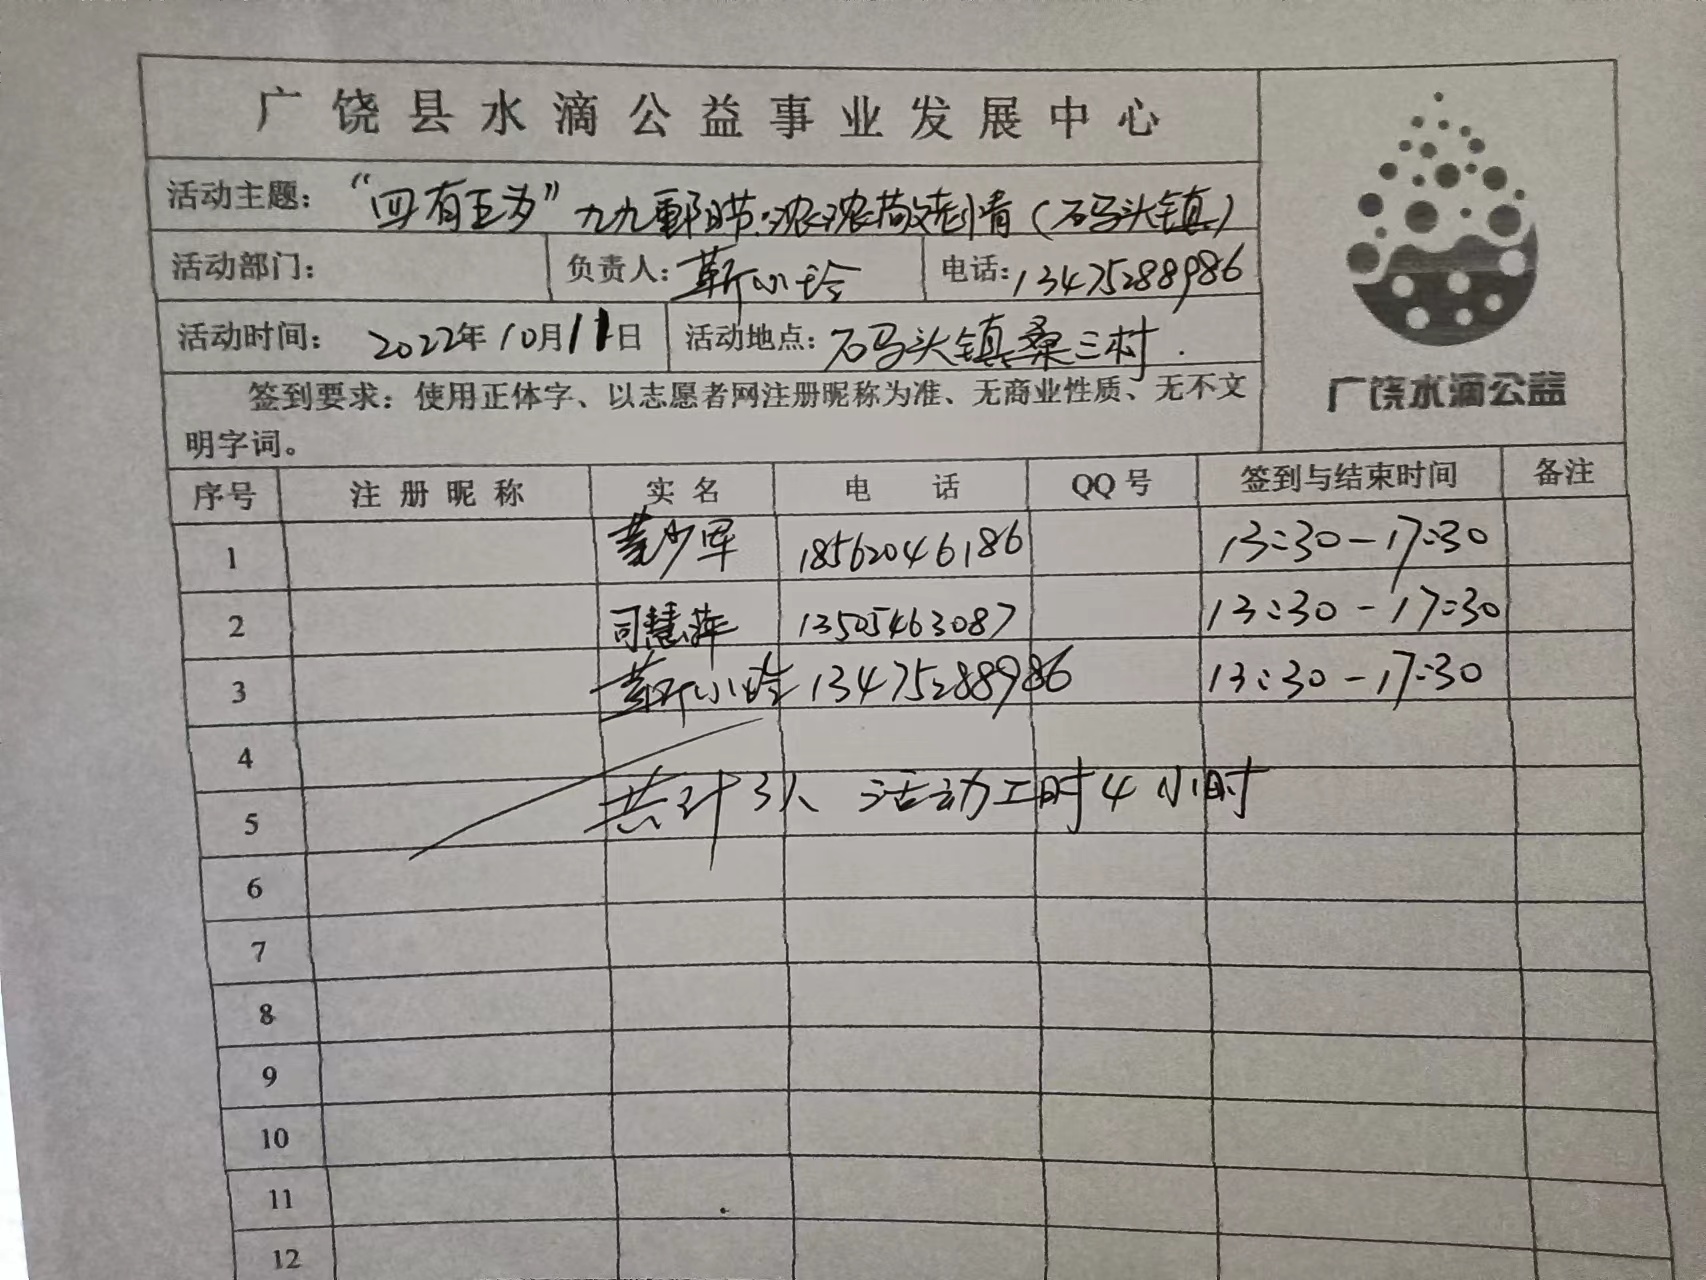 广饶县水滴公益事业发展中心
活动主题：“四有五为”九九重阳节·浓浓敬老情（石码头镇）
活动部门： 负责人：靳小玲 电话：13475288986
活动时间：2022年10月11日 活动地点：石码头镇桑三村.
签到要求：使用正体字、以志愿者网注册昵称为准、无商业性质、无不文
明字词。
广饶水滴公益
序号 注册昵称 实名 电话 QQ号 签到与结束时间 备注
1 18562046186 13:30-17:30
2 司慧萍 13505463087 13:30-17:30
3 靳小玲 13475288986 13:30-17:30
4
共计3人 活动工时4小时
5
6
7
8
9
10
11
12